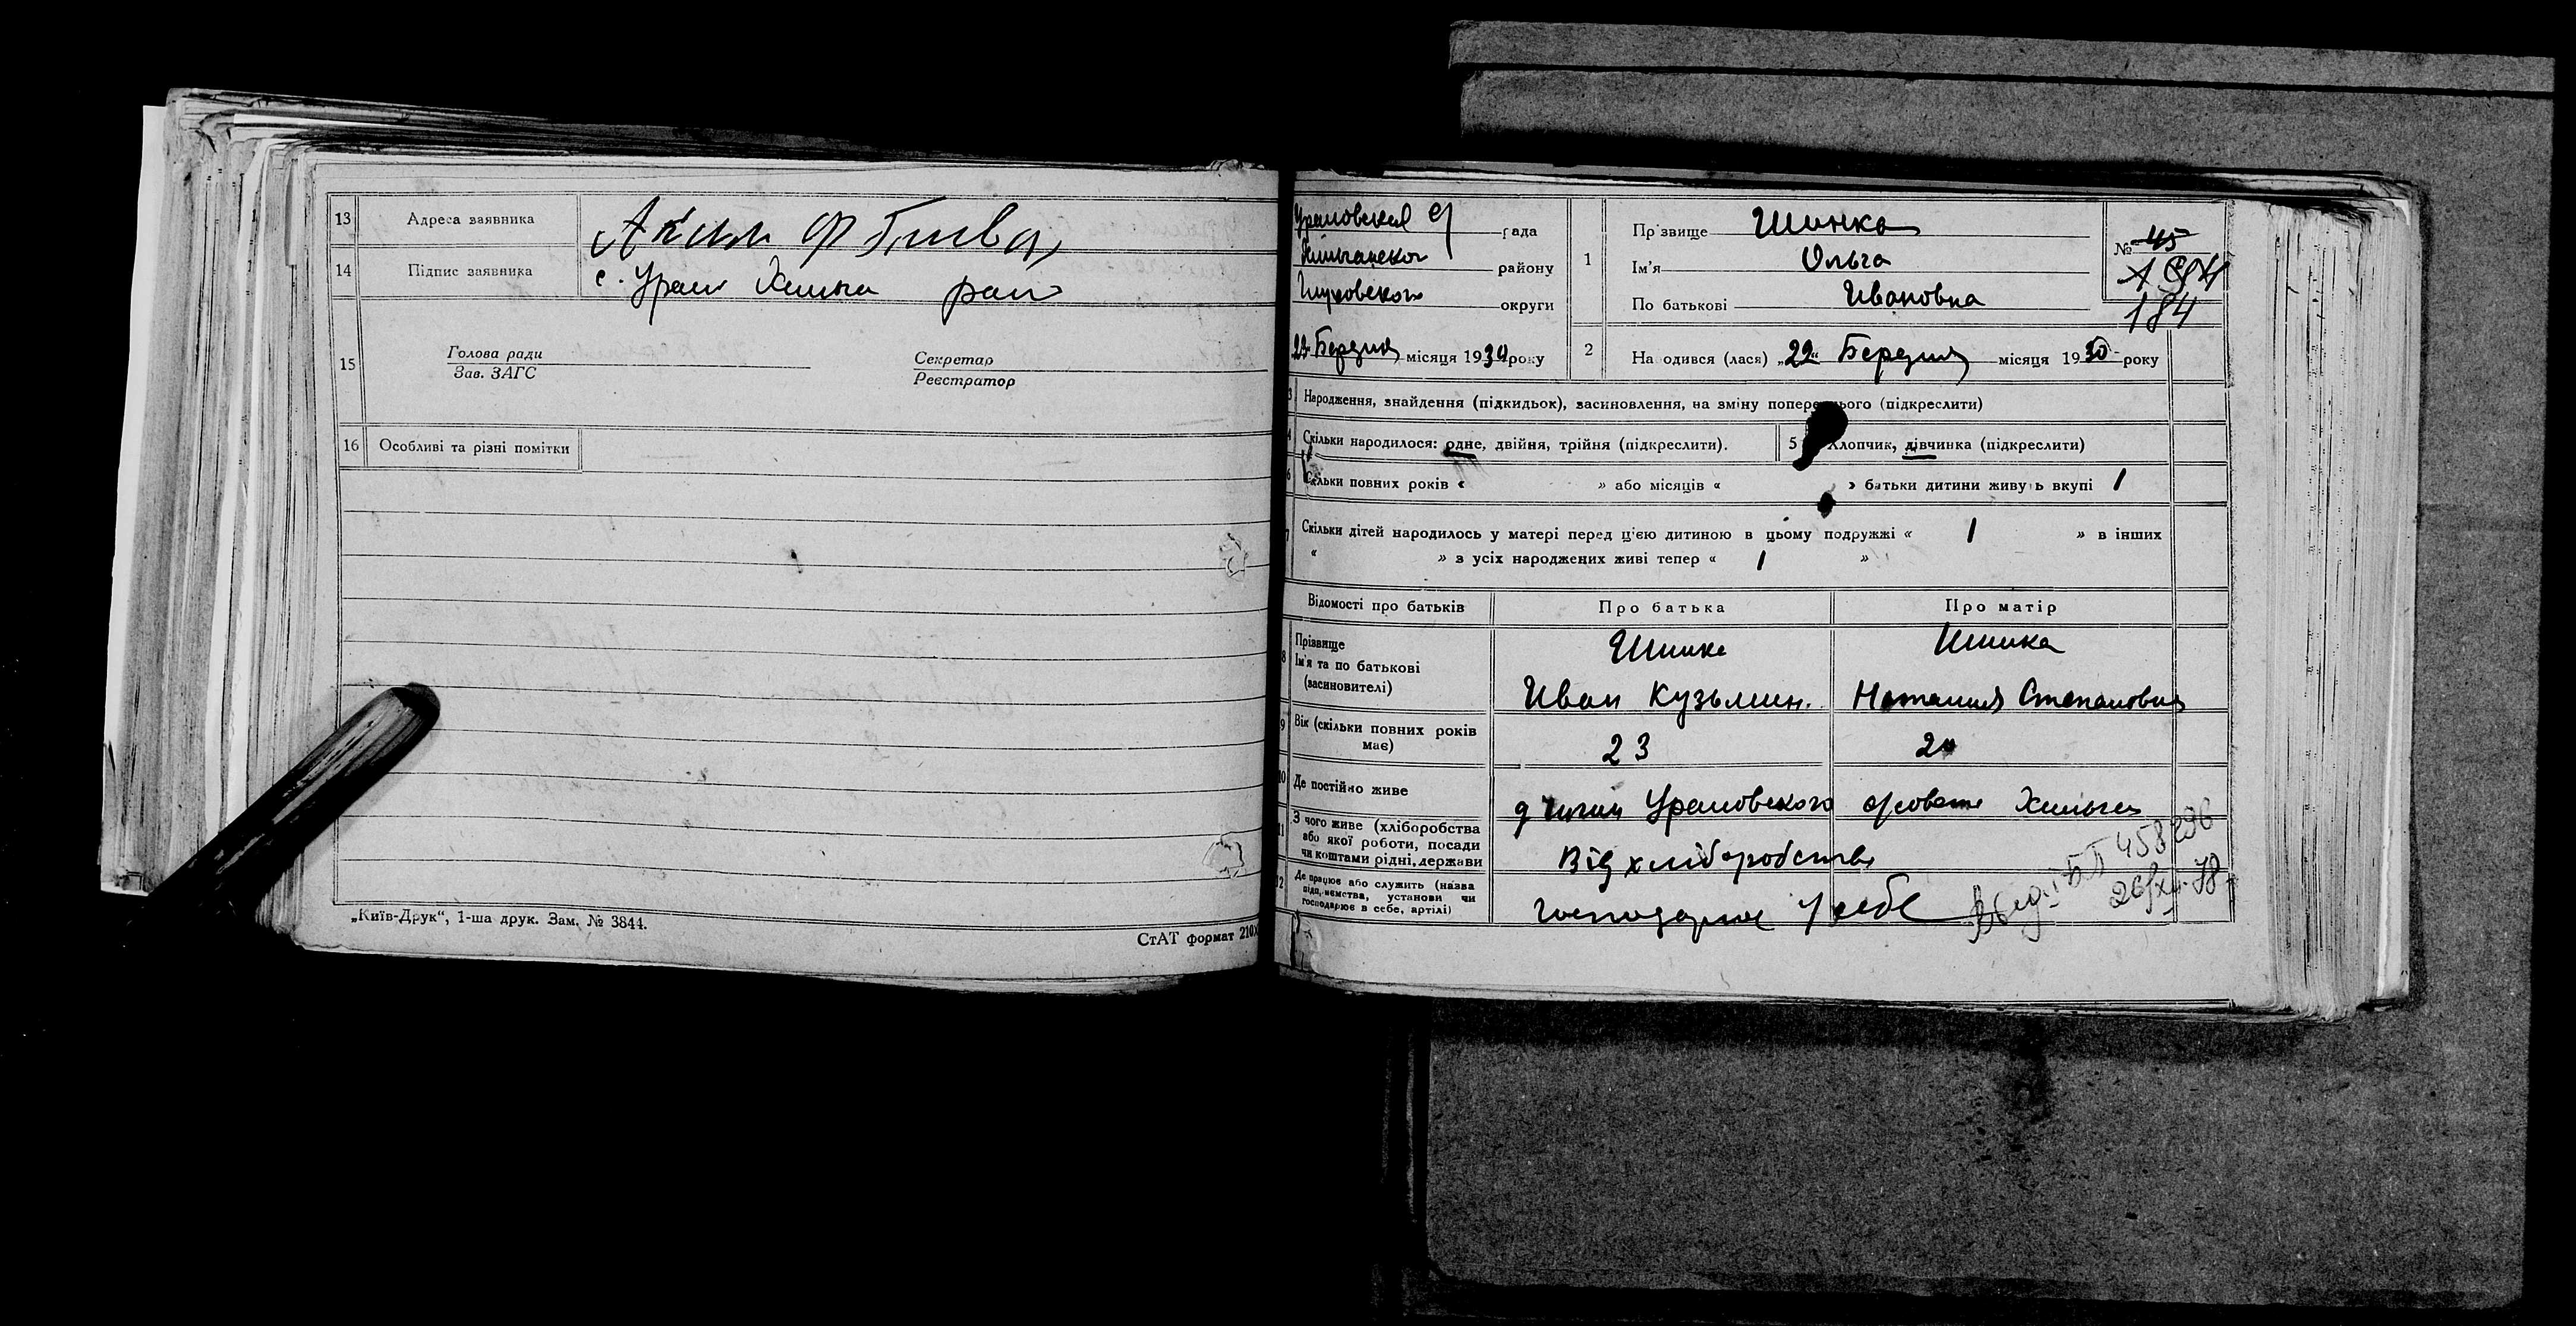 13 Адреса заявника
14 Підпис заявника
с. рай
15 Голова ради
Зав. ЗАГС
Секретар
Реєстратор
16 Особливі та різні помітки
„Київ-Друк“, 1-ша друк. Зам. № 3844.
СтАТ формат 210
рада
району
округи
Березня місяця 1930 року
1 Прізвище Шинка
Ім'я Ольга
По батькові Ивановна
№ 45
184
2 На одився (лася) „22“ Березня місяця 1930 року
Народження, знайдення (підкидьок), засиновлення, на зміну попере нього (підкреслити)
Скільки народилося: одне, двійня, трійня (підкреслити).
5 Хлопчик, дівчинка (підкреслити)
6 Скільки повних років « » або місяців « » батьки дитини живу ь вкупі 1
7 Скільки дітей народилось у матері перед ц'єю дитиною в цьому подружжі « 1 » в інших
« » з усіх народжених живі тепер « 1 »
Відомості про батьків
Про батька
Про матір
8 Прізвище
Ім'я та по батькові
(засиновителі)
Шинка
Иван Кузьмин.
Шинка
Наталия Степановна
9 Вік (скільки повних років має)
23
20
10 Де постійно живе
11 З чого живе (хліборобства
або якої роботи, посади
чи коштами рідні, держави
Від хліборобства
12 Де працює або служить (назва
підп, иємства, установи чи
господарює в себе, артілі)
господарює у себе
БП 458296
26/XII 78